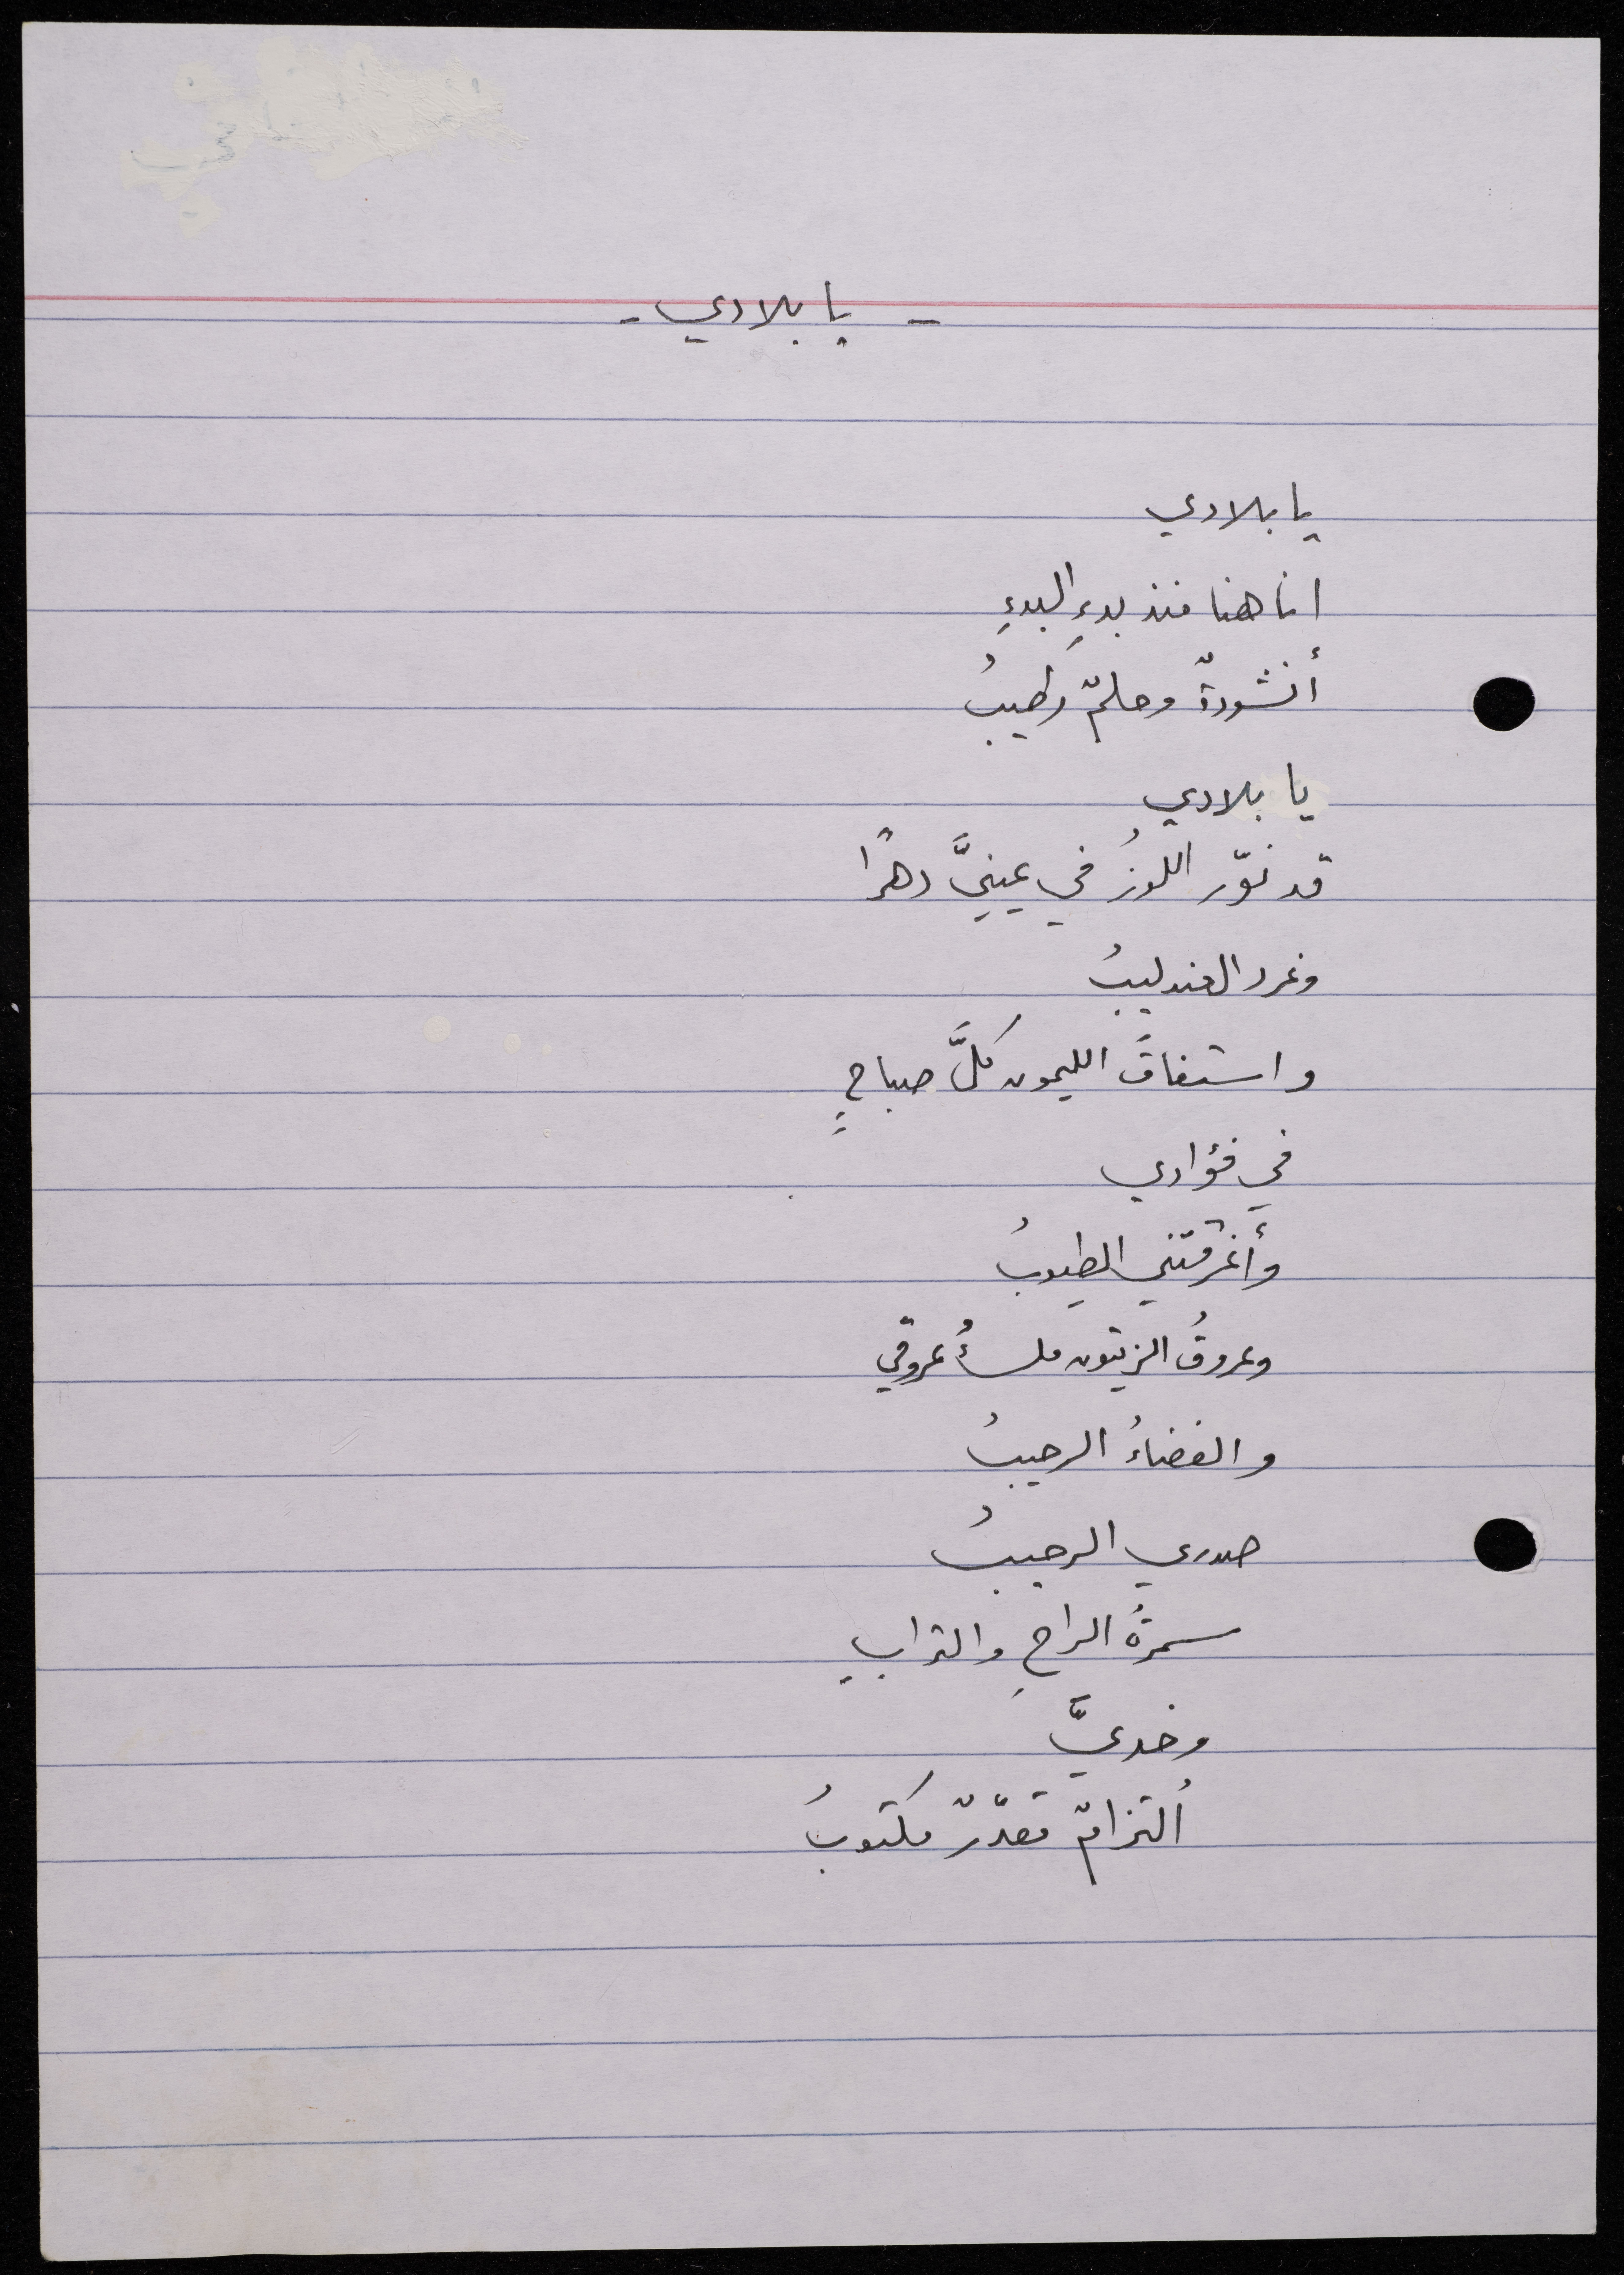 - يا بلادي -
يا بلادي
انا هنا منذ بدءِ البدءِ
أنشودةٌ وحلمٌ رطيبُ
يا بلادي
قد نوّر اللوزُ في عينيَّ دهرًا
وغرد العندليبُ
واستفاقَ الليمون كلَّ صباحٍ
في فؤادي
وأغرقتني الطيوبُ
وعروقُ الزيتون ملءُ عروقي
والفضاءُ الرحيبُ
صدري الرحيبُ
سمرةُ الراحِ والترابِ
وخديَّ
التزامٌ مقدّرٌ مكتوبُ